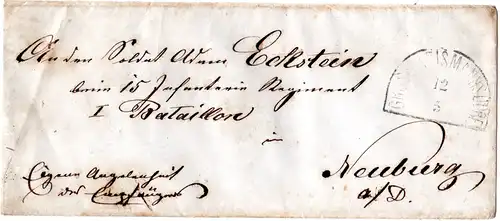 An den Soldat Adam Eckstein
beim 15 Infanterie Regiment
I Bataillon
in
Neuburg
a/D.
Eigene Angelenheit
des Empfängers
12
3